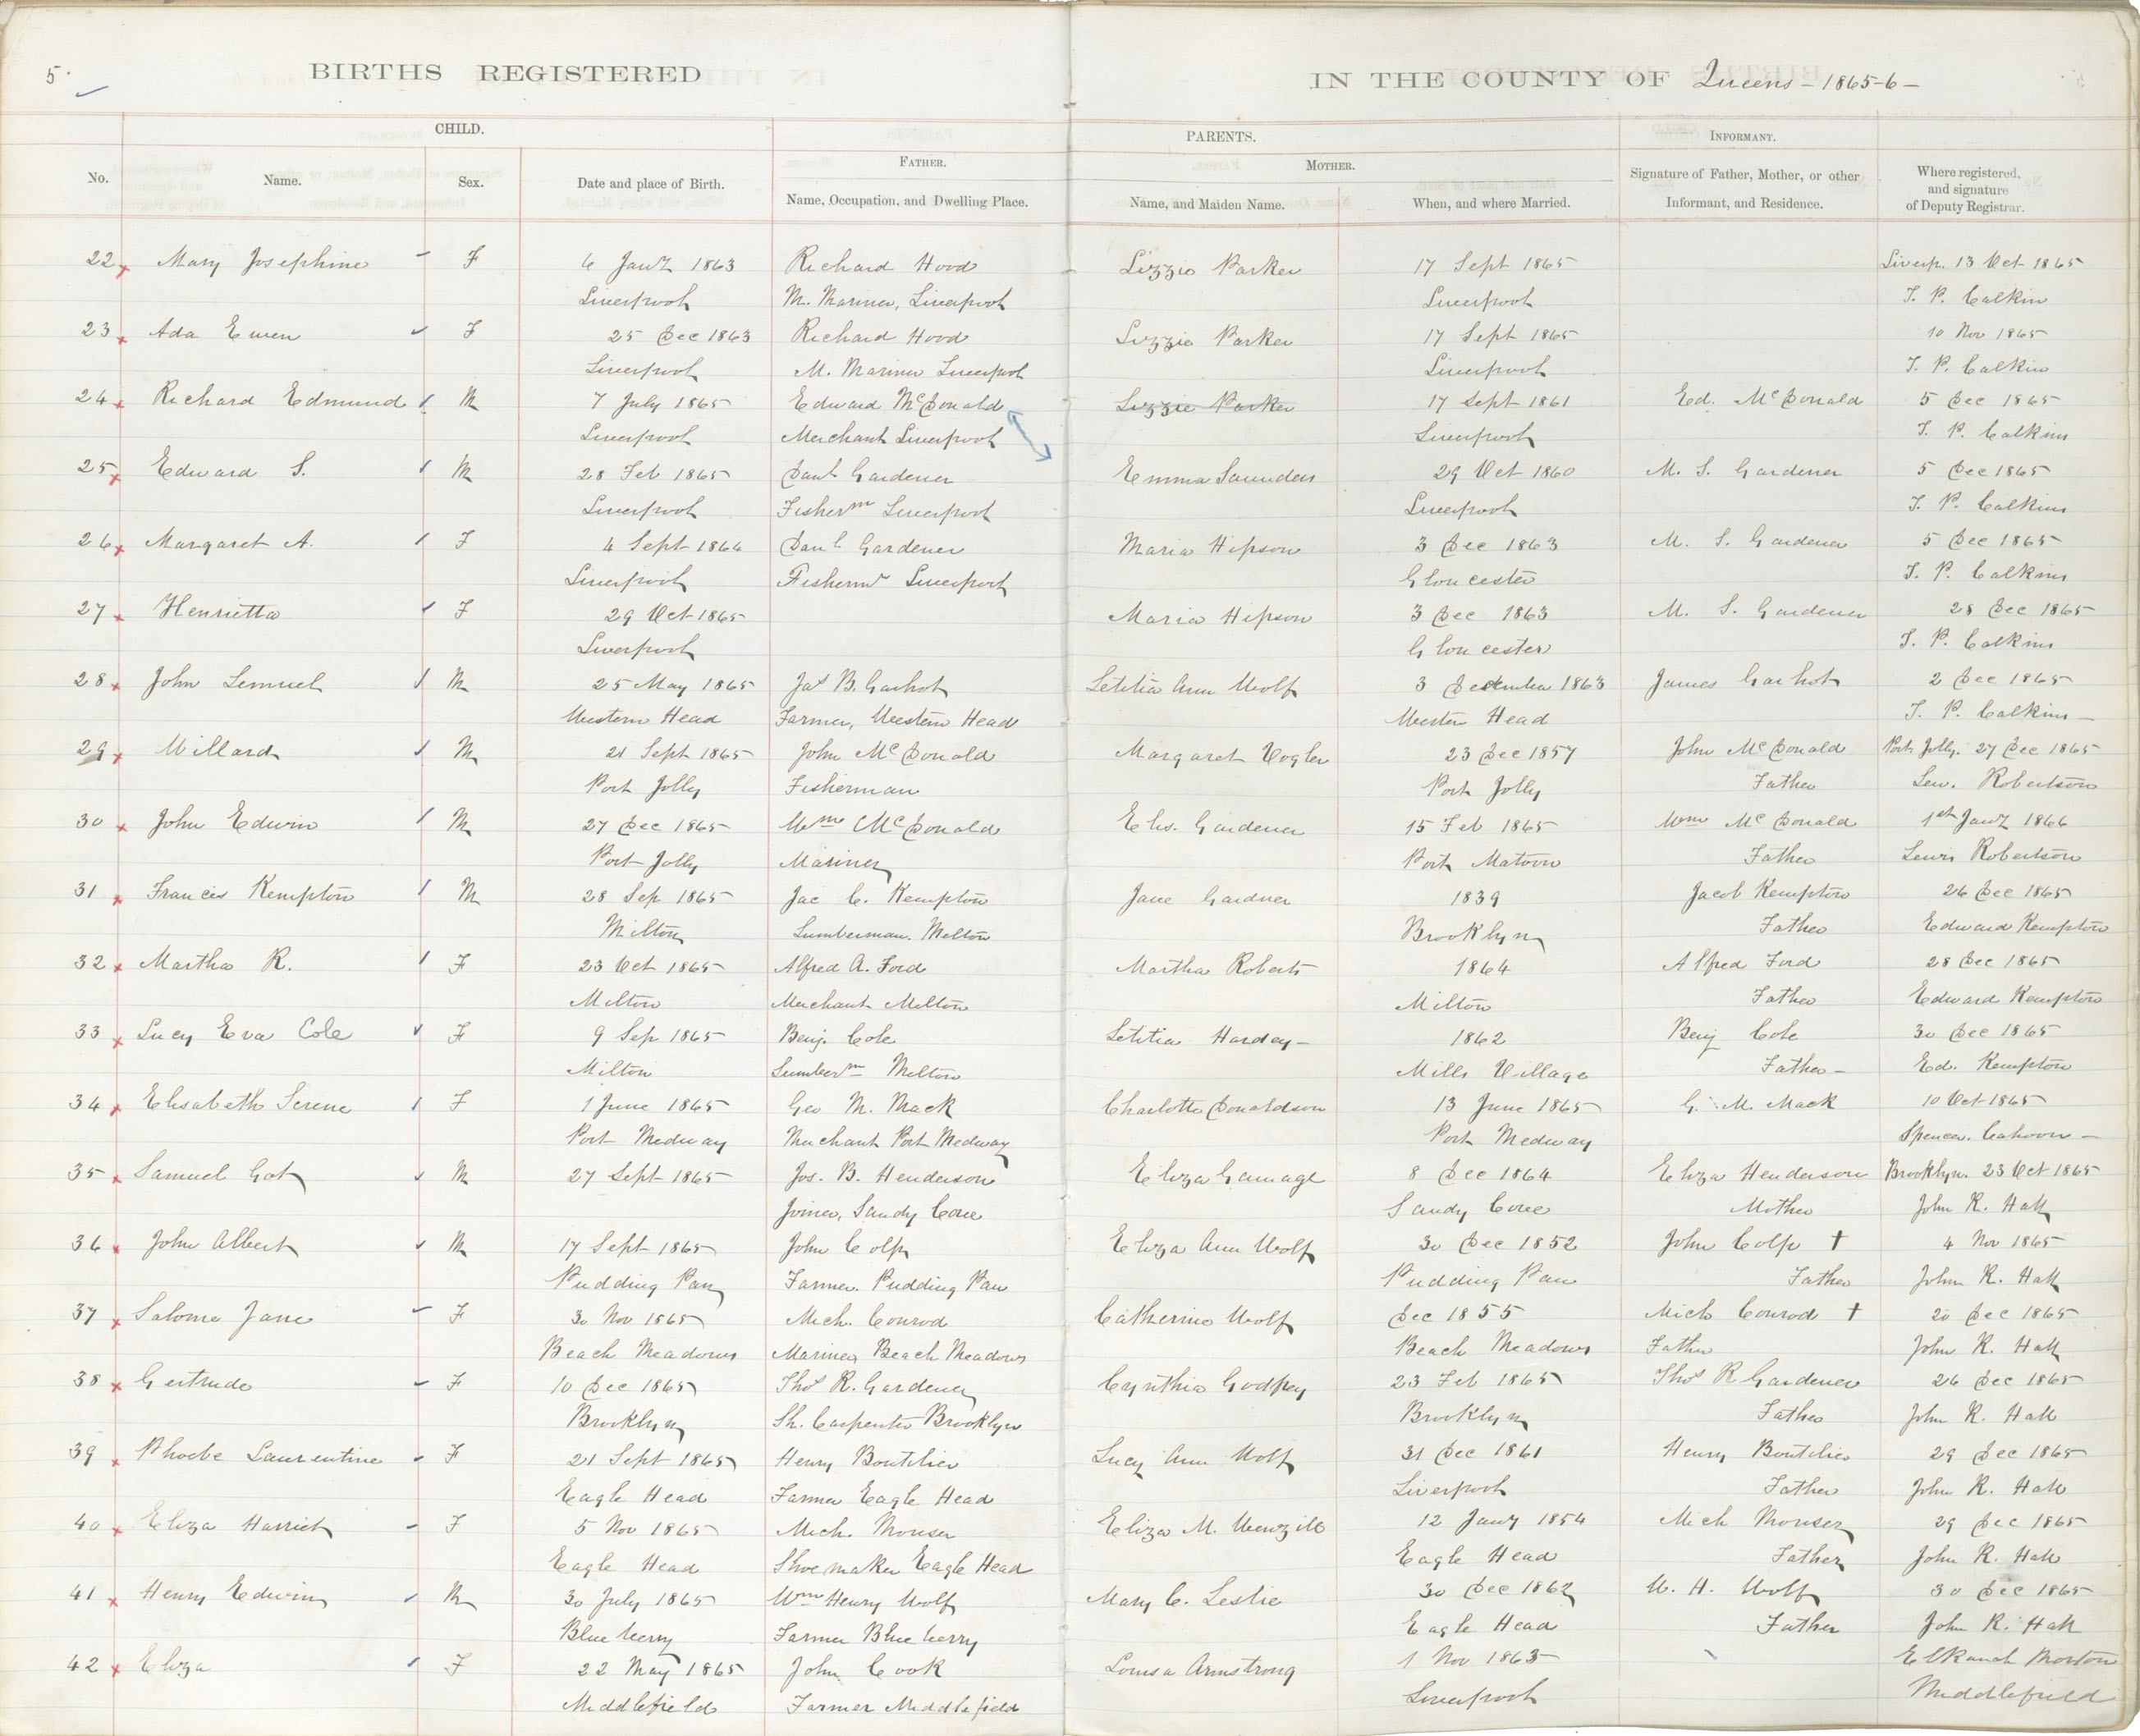 5.
BIRTHS REGISTERED IN THE COUNTY OF Queens - 1865-6 -
CHILD. PARENTS. INFORMANT.
No. Name. Sex. Date and place of Birth. FATHER. Name, Occupation, and Dwelling Place. MOTHER. Name, and Maiden Name. When, and where Married. Signature of Father, Mother, or other Informant, and Residence. Where registered, and signature of Deputy Registrar.
22 Mary Josephine F 6 Jany 1863 Richard Hood Lizzie Parker 17 Sept 1865 Liverp. 13 Oct 1865
Liverpool M. Mariner, Liverpool Liverpool T. P. Calkin
23 Ada Ewen F 25 Dec 1863 Richard Hood Lizzie Parker 17 Sept 1865 10 Nov 1865
Liverpool M. Mariner Liverpool Liverpool T. P. Calkin
24 Richard Edmund M 7 July 1865 Edward McDonald Lizzie Parker 17 Sept 1861 Ed. McDonald 5 Dec 1865
Liverpool Merchant Liverpool Liverpool T. P. Calkins
25 Edward S. M 28 Feb 1865 Danl Gardener Emma Saunders 29 Oct 1860 M. S. Gardener 5 Dec 1865
Liverpool Fisherm Liverpool Liverpool T. P. Calkins
26 Margaret A. F 4 Sept 1864 Danl Gardener Maria Hipson 3 Dec 1863 M. S. Gardener 5 Dec 1865
Liverpool Fishermn Liverpool Gloucester T. P. Calkins
27 Henrietta F 29 Oct 1865 Maria Hipson 3 Dec 1863 M. S. Gardener 28 Dec 1865
Liverpool Gloucester T. P. Calkins
28 John Lemuel M 25 May 1865 Jas B. Gachot Letitia Ann Wolf 3 December 1863 James Gachot 2 Dec 1865
Western Head Farmer, Western Head Western Head T. P. Calkins -
29 Willard M 21 Sept 1865 John McDonald Margaret Vogler 23 Dec 1857 John McDonald Port Jolly. 27 Dec 1865
Port Jolly Fisherman Port Jolly Father Lew. Robertson
30 John Edwin M 27 Dec 1865 Wm McDonald Elis. Gardener 15 Feb 1865 Wm McDonald 1st Jany 1866
Port Jolly Mariner Port Matoon Father Lewis Robertson
31 Francis Kempton M 28 Sep 1865 Jac C. Kempton Jane Gardner 1839 Jacob Kempton 26 Dec 1865
Milton Lumberman. Milton Brooklyn Father Edward Kempton
32 Martha R. F 23 Oct 1865 Alfred A. Ford Martha Roberts 1864 Alfred Ford 28 Dec 1865
Milton Merchant Milton Milton Father Edward Kempton
33 Lucy Eva Cole F 9 Sep 1865 Benj. Cole Letitia Hardey - 1862 Benj Cole 30 Dec 1865
Milton Lumberm Milton Mills Village Father - Ed. Kempton
34 Elisabeth Serene F 1 June 1865 Geo M. Mack Charlotte Donaldson 13 June 1865 G. M. Mack 10 Oct 1865
Port Medway Merchant Port Medway Port Medway Spencer Cahoon -
35 Samuel Got M 27 Sept 1865 Jos. B. Henderson Eliza Gamage 8 Dec 1864 Eliza Henderson Brooklyn. 23 Oct 1865
Joiner, Sandy Cove Sandy Cove Mother John R. Hall
36 John Albert M 17 Sept 1865 John Colp Eliza Ann Wolf 30 Dec 1852 John Colp + 4 Nov 1865
Pudding Pan Farmer. Pudding Pan Pudding Pan Father John R. Hall
37 Salome Jane F 30 Nov 1865 Mich. Conrod Catherine Wolf Dec 1855 Mich Conrod + 20 Dec 1865
Beach Meadows Mariner Beach Meadows Beach Meadows Father John R. Hall
38 Gertrude F 10 Dec 1865 Thos R. Gardener Cynthia Godfrey 23 Feb 1865 Thos R Gardener 26 Dec 1865
Brooklyn Sh. Carpenter Brooklyn Brooklyn Father John R. Hall
39 Phoebe Laurentine F 21 Sept 1865 Henry Boutilier Lucy Ann Wolf 31 Dec 1861 Henry Boutilier 29 Dec 1865
Eagle Head Farmer Eagle Head Liverpool Father John R. Hall
40 Eliza Harriet F 5 Nov 1865 Mich. Mouser Eliza M. Wenzill 12 Jany 1854 Mich Mouser 29 Dec 1865
Eagle Head Shoemaker Eagle Head Eagle Head Father John R. Hall
41 Henry Edwin M 30 July 1865 Wm Henry Wolf Mary C. Leslie 30 Dec 1862 W. H. Wolf 30 Dec 1865
Blue berry Farmer Blue berry Eagle Head Father John R. Hall
42 Eliza F 22 May 1865 John Cook Louisa Armstrong 1 Nov 1863 Elkanah Morton
Middlefield Farmer Middlefield Liverpool Middlefield